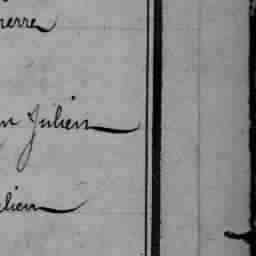 ierre
n Julien
lien